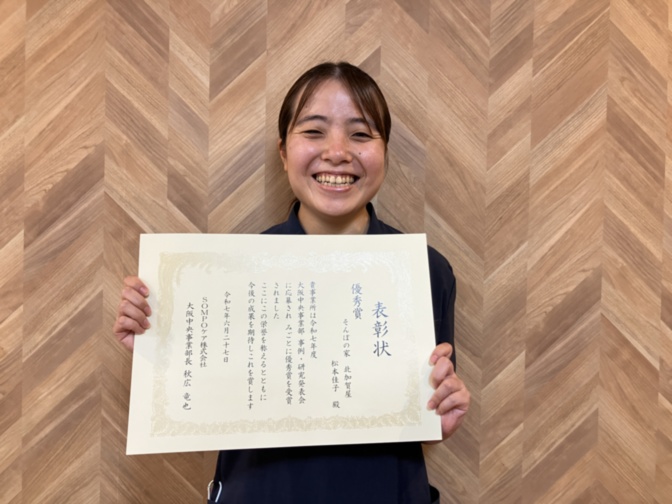 表彰状
優秀賞
そんぽの家 北加賀屋
松本佳子 殿
貴事業所は令和七年度
大阪中央事業部 事例・研究発表会
に応募され みごとに優秀賞を受賞
されました
ここにこの栄誉を称えるとともに
今後の成果を期待しこれを賞します
令和七年六月二十七日
SOMPOケア株式会社
大阪中央事業部長 秋広 竜也